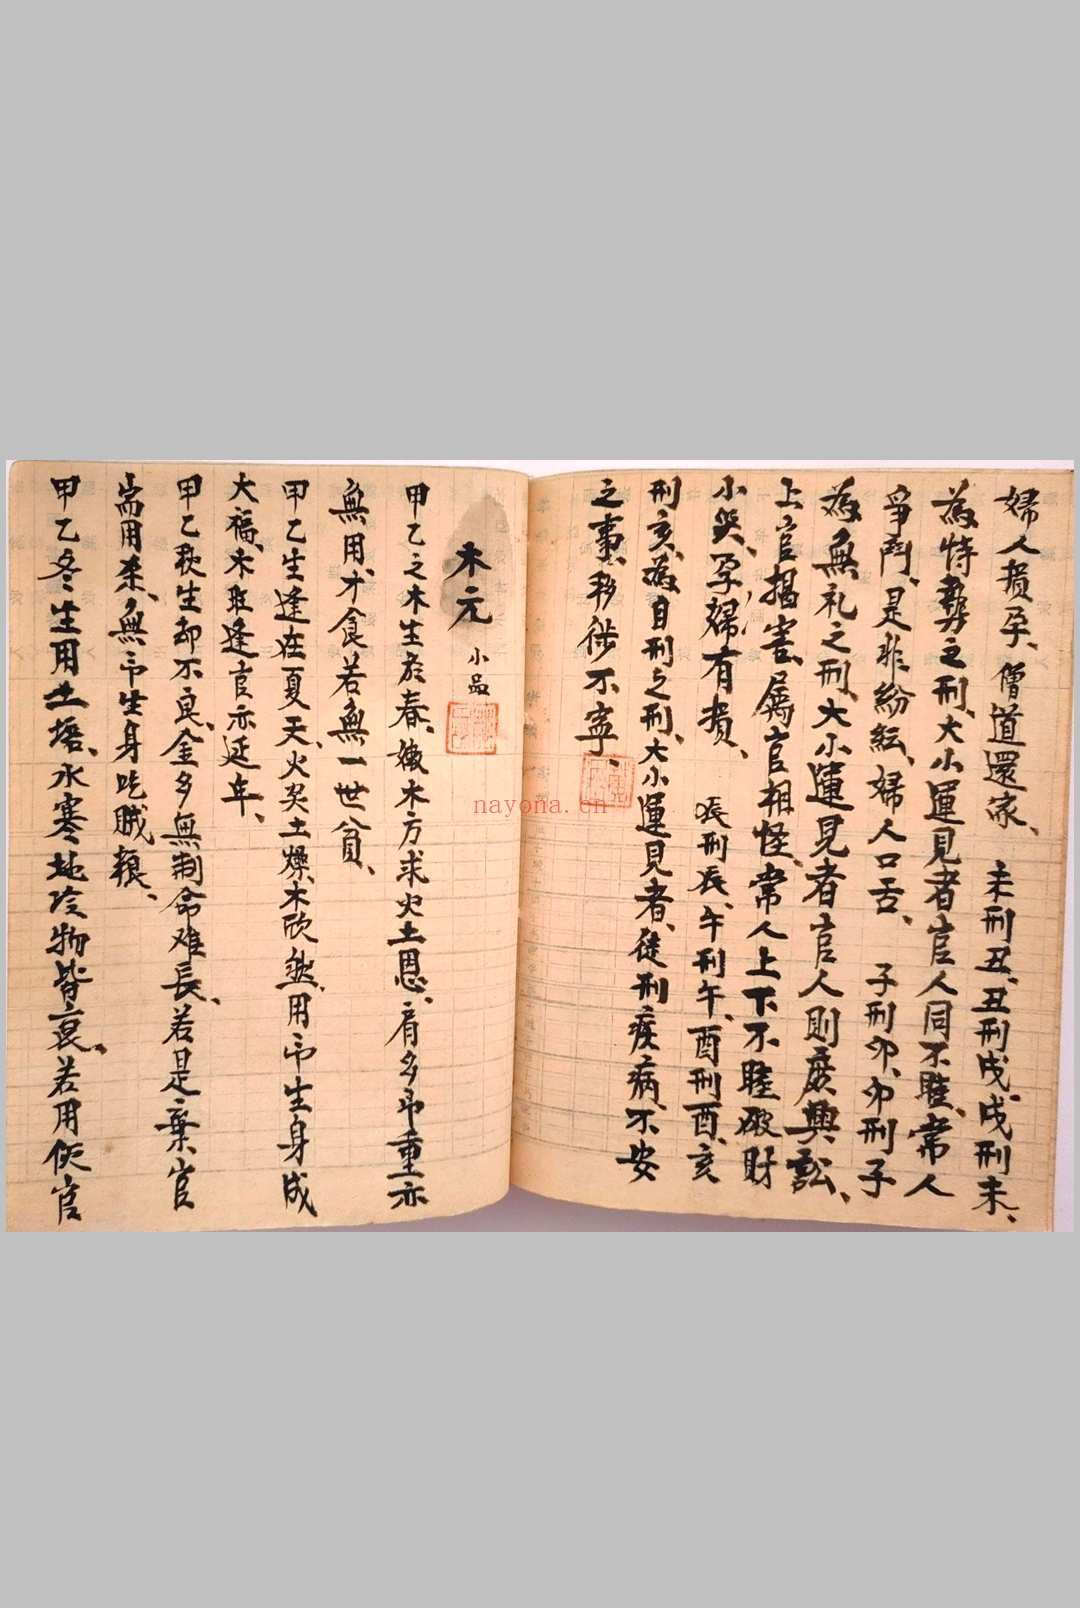 婦人損孕、僧道還家、 未刑丑、丑刑戌、戌刑未、
為恃勢之刑、大小運見者官人同不睦、常人
爭鬥、是非紛紜、婦人口舌、 子刑卯、卯刑子
為無礼之刑、大小運見者官人則廢興訟、
上官揭害、属官相怪、常人上下不睦破財
小哭、孕婦有損、 辰刑辰、午刑午、酉刑酉、亥
刑亥、為自刑之刑、大小運見者、徒刑疾病、不安
之事、移徙不寧、
木元 小品
甲乙之木生於春、嫩木方求火土恩、肩多印重亦
無用、才食若無一世貧、
甲乙生逢在夏天、火炎土燥木欣然、用印生身成
大福、木旺逢官亦延年、
甲乙秋生却不良、金多無制命难長、若是棄官
当用杀、無印生身吃賊粮、
甲乙冬生用土培、水寒地冷物皆衰、若用伤官
nayona.cn